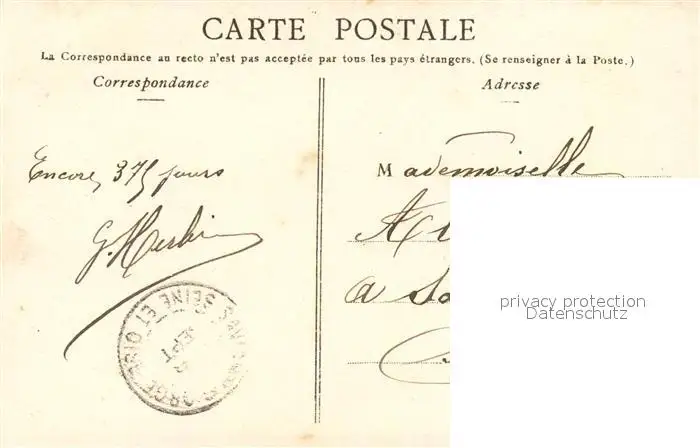 CARTE POSTALE
La Correspondance au recto n'est pas acceptée par tous les pays étrangers. (Se renseigner à la Poste.)
Correspondance
Adresse
Encore 375 jours
G. Herbin
Mademoiselle
A
a Sa
privacy protection
Datenschutz
SEINE ET OISE
SEPT